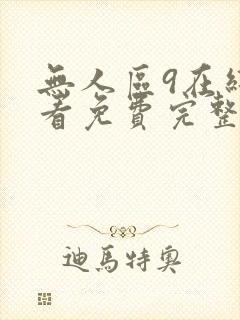 無人區9在
看免費完整
迪馬特奧